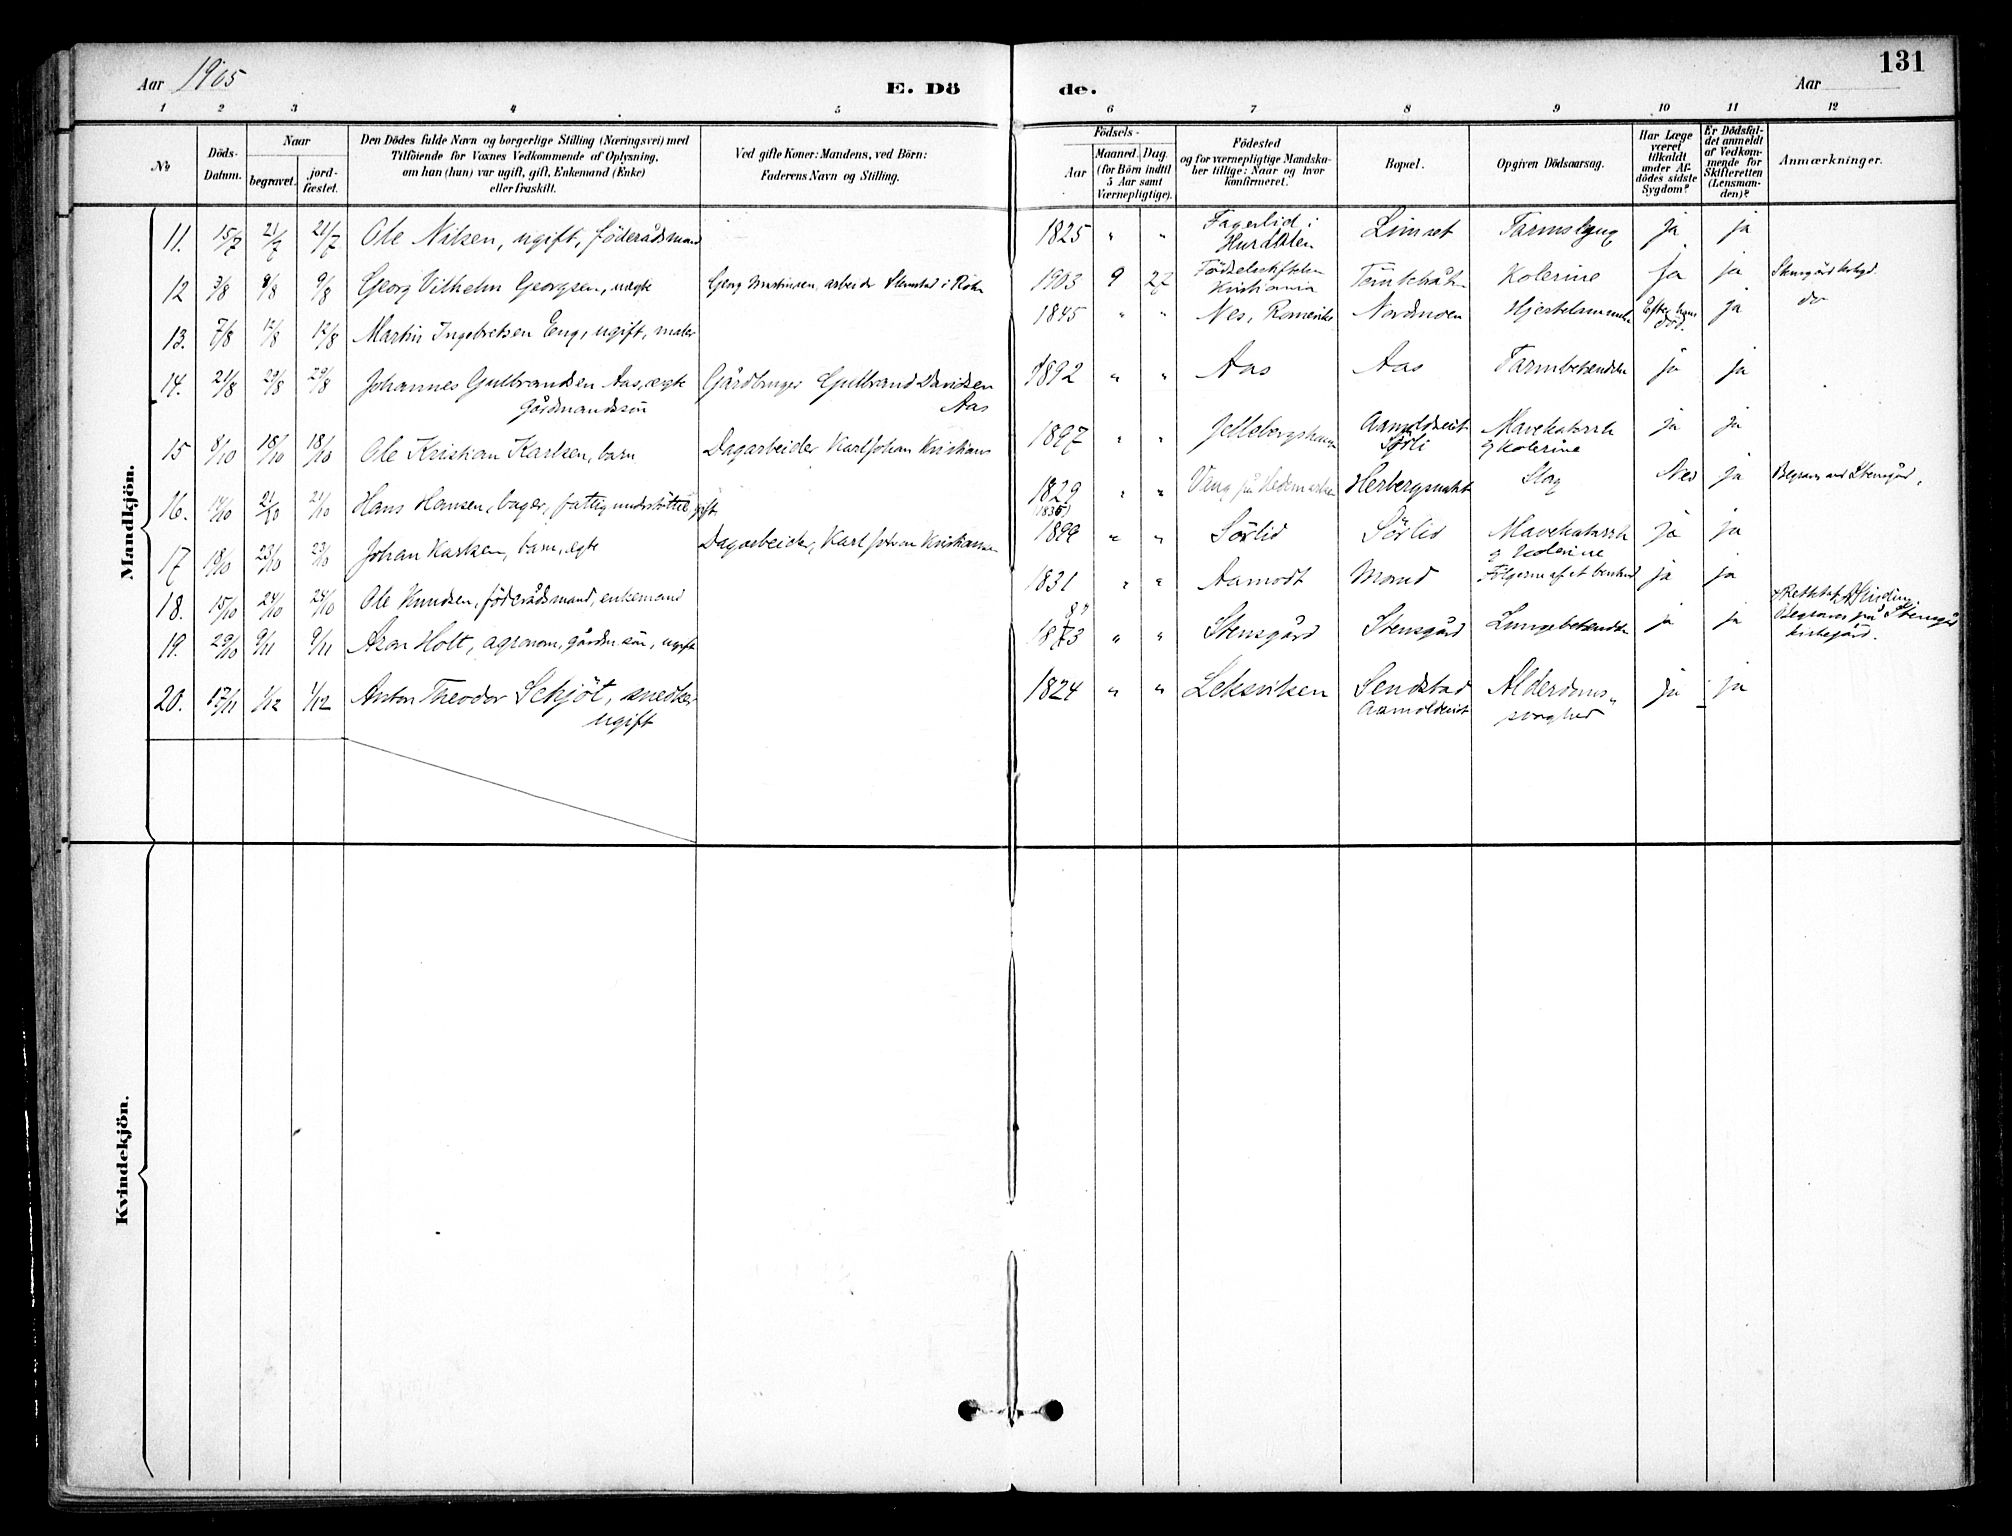 131
Aar 1905
E. Dö de.
Aar
1 2 3 4 5 6 7 8 9 10 11 12
No
Döds-Datum.
Naar
begravet.
jord-fæstet.
Den Dödes fulde Navn og borgerlige Stilling (Næringsvei) med
Tilföiende for Voxnes Vedkommende af Oplysning,
om han (hun) var ugift, gift, Enkemand (Enke)
eller fraskilt.
Ved gifte Koner: Mandens, ved Börn:
Faderens Navn og Stilling.
Födsels-
Aar
Maaned. Dag.
(for Börn indtil
5 Aar samt
Værnepligtige).
Födested
og for værnepligtige Mandska-
ber tillige: Naar og hvor
konfirmeret.
Bopæl.
Opgiven Dödsaarsag.
Har Læge
været
tilkaldt
under Af-
dödes sidste
Sygdom?
Er Dödsfal-
det anmeldt
af Vedkom-
mende for
Skifteretten
(Lensman-
den)?
Anmærkninger.
Mandkjön.
11. 15/7 21/7 21/7 Ole Nilsen, ugift, föderådsmand 1825 " " Fagerlid i Hurdalen Limset ja ja
12 3/8 8/8 9/8 Georg Vilhelm Georgsen, uægte Georg arbeider i 1903 9 27 Fødselsstiftelsen Kristiania Kolerine ja ja
13. 7/8 12/8 12/8 Martin Ingebretsen Eng, ugift, maler 1845 " " Nes, Romerike Nordmoen Efter hans død. ja do
14. 21/8 29/8 29/8 Johannes Gulbrandsen Aas, ægte Gårdmandssön Gårdbruger Gulbrand Davidsen Aas 1892 " " Aas Aas Tarmbetændelse ja ja
15 8/10 18/10 18/10 Ole Kristian Karlsen, barn Dagarbeider Karl Johan Kristians 1897 " " Sörli Mavekatarrh og kolerine ja ja
16. 14/10 21/10 21/10 Hans Hansen, bager, fattigunderstöttet gift 1829 (1835) " " Vang på Hedemarken Slag Nei ja
17 18/10 23/10 23/10 Johan Karlsen, barn, ægte Dagarbeider, Karl Johan Kristiansen 1899 " " Sörlid Sörlid Mavekatarrh og kolerine ja ja
18. 15/10 24/10 24/10 Ole Knudsen, föderådsmand, enkemand 1831 " " Aamodt Mord Fölgerne af et benbrud ja ja
19. 29/10 9/11 9/11 Aron Holt, agronom, ugift 1873 " " Stensgård Stensgård Lungebetændelse ja ja
20. 17/11 1/12 1/12 Anton Theodor Sekjöt, snedker ugift 1824 " " Leksviken Sendstad Alderdoms-svaghed ja ja
Kvindekjön.